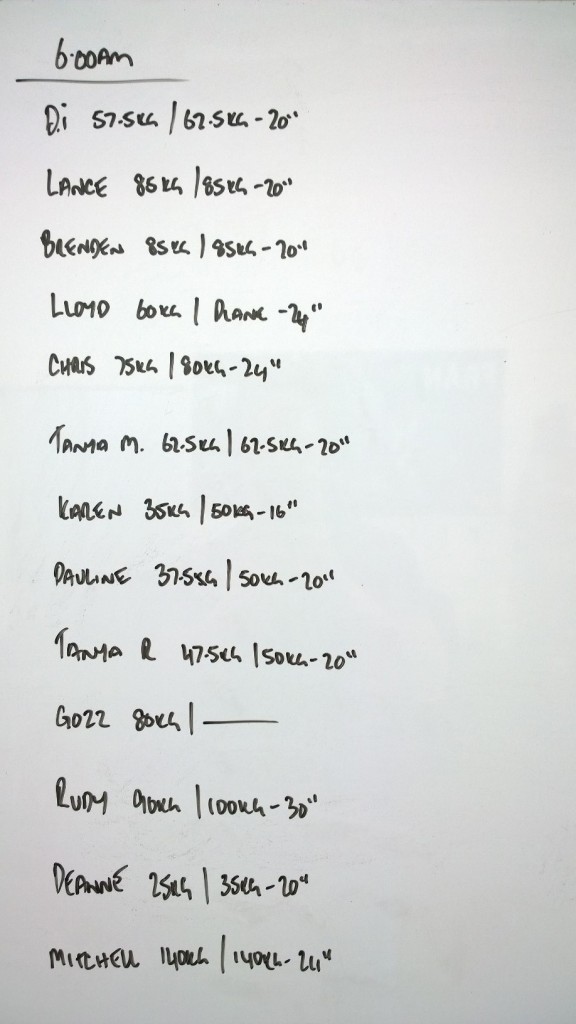 6:00AM
Di 57.5KG / 62.5KG - 20"
LANCE 85KG / 85KG - 20"
BRENDEN 85KG / 85KG - 20"
LLOYD 60KG / PLANK - 24"
CHRIS 75KG / 80KG - 24"
TANYA M. 62.5KG / 62.5KG - 20"
KAREN 35KG / 50KG - 16"
PAULINE 37.5KG / 50KG - 20"
TANYA R 47.5KG / 50KG - 20"
GOZZ 80KG / —
RUDY 90KG / 100KG - 30"
DEANNE 25KG / 35KG - 20"
MITCHELL 140KG / 140KG - 24"